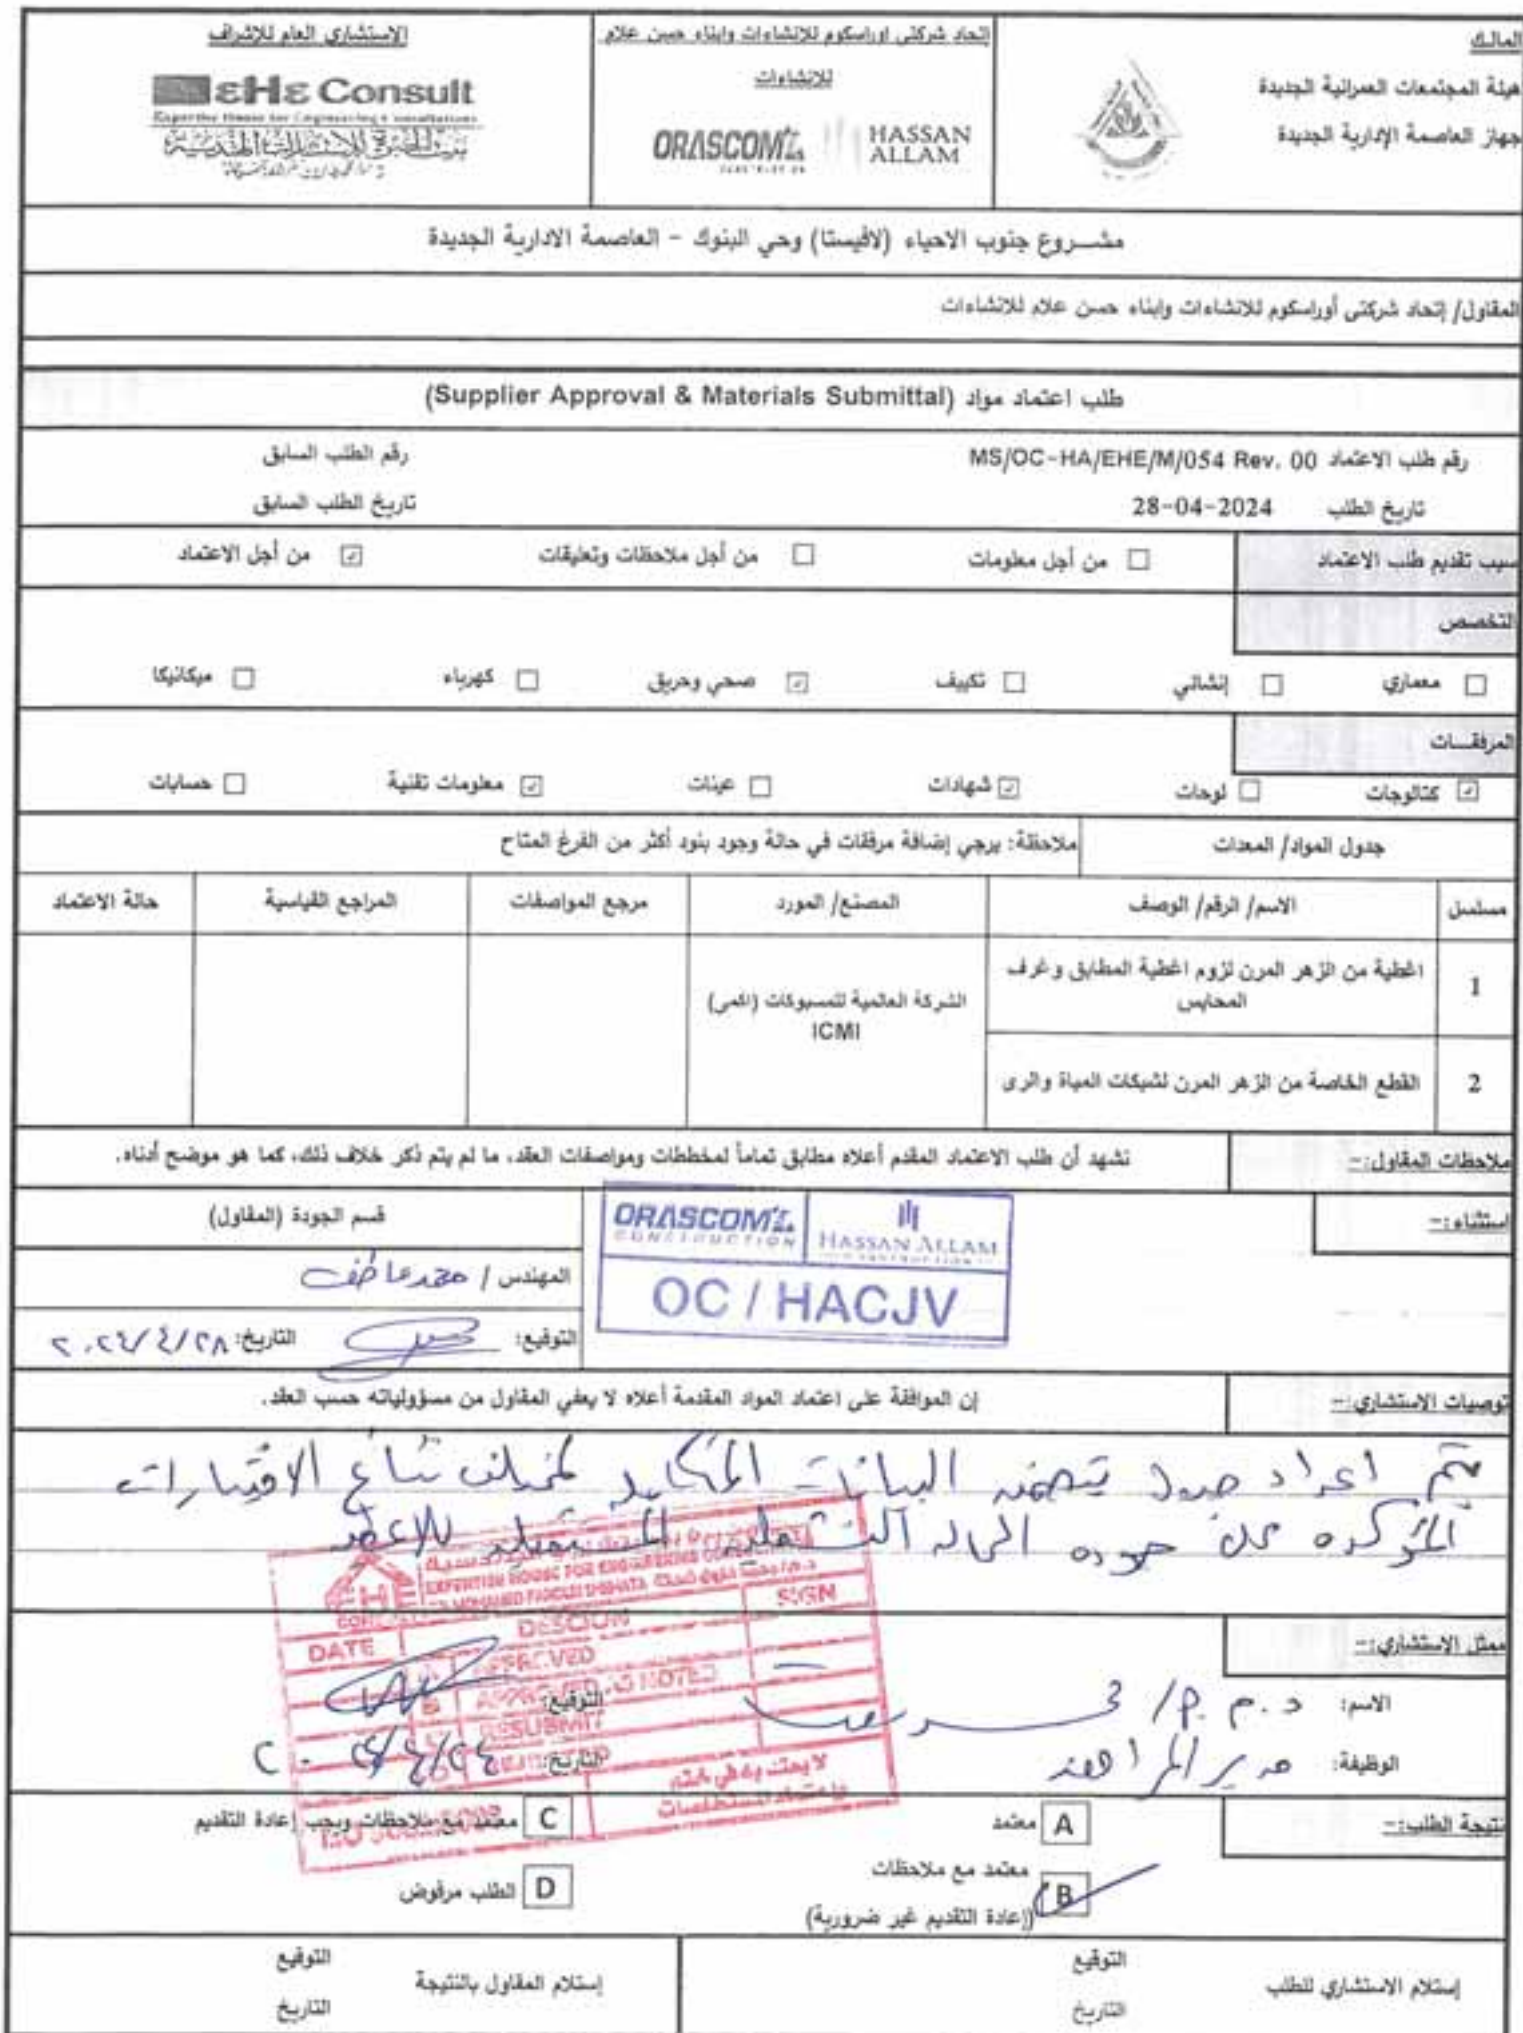 المالك
هيئة المجتمعات العمرانية الجديدة
جهاز العاصمة الإدارية الجديدة
إتحاد شركتى اوراسكوم للإنشاءات وابناء حسن علام
للإنشاءات
ORASCOM
CONSTRUCTION
HASSAN
ALLAM
الاستشاري العام للإشراف
εHε Consult
Expertise House for Engineering Consultations
بيت الخبرة للاستشارات الهندسية
مشـــروع جنوب الاحياء (لافيستا) وحي البنوك - العاصمة الادارية الجديدة
المقاول/ إتحاد شركتى أوراسكوم للانشاءات وابناء حسن علام للانشاءات
طلب اعتماد مواد (Supplier Approval & Materials Submittal)
رقم طلب الاعتماد MS/OC-HA/EHE/M/054 Rev. 00
رقم الطلب السابق
تاريخ الطلب 28-04-2024
تاريخ الطلب السابق
سبب تقديم طلب الاعتماد
☐ من أجل معلومات
☐ من أجل ملاحظات وتعليقات
☑ من أجل الاعتماد
التخصص
☐ معماري
☐ إنشائي
☐ تكييف
☑ صحي وحريق
☐ كهرباء
☐ ميكانيكا
المرفقـــات
☑ كتالوجات
☐ لوحات
☑ شهادات
☐ عينات
☑ معلومات تقنية
☐ حسابات
جدول المواد/ المعدات
ملاحظة: يرجي إضافة مرفقات في حالة وجود بنود أكثر من الفرغ المتاح
مسلسل
الاسم/ الرقم/ الوصف
المصنع/ المورد
مرجع المواصفات
المراجع القياسية
حالة الاعتماد
1
اغطية من الزهر المرن لزوم اغطية المطابق وغرف
المحابس
الشركة العالمية للمسبوكات (اكمى)
ICMI
2
القطع الخاصة من الزهر المرن لشبكات المياة والرى
ملاحظات المقاول:-
نشهد أن طلب الاعتماد المقدم أعلاه مطابق تماماً لمخططات ومواصفات العقد، ما لم يتم ذكر خلاف ذلك، كما هو موضح أدناه.
استثناء:-
ORASCOM
CONSTRUCTION
HASSAN ALLAM
CONSTRUCTION
OC / HACJV
قسم الجودة (المقاول)
المهندس / محمد عاطف
التوقيع:
التاريخ: ٢٠٢٤/٤/٢٨
توصيات الاستشاري:-
إن الموافقة على اعتماد المواد المقدمة أعلاه لا يعفي المقاول من مسؤولياته حسب العقد.
يتم اعداد جدول يتضمن البيانات نتائج الاختبارات
المؤكده على جوده
EXPERTISE HOUSE FOR ENGINEERING CONSULT
DATE
DESCION
SIGN
APPROVED
B APPROVED AS NOTED
RESUBMIT
لا يعتد به في ختم
واعتماد المستخلصات
ممثل الاستشاري:-
الاسم: د. م. م/
التوقيع:
الوظيفة: مدير
التاريخ:
نتيجة الطلب:-
A معتمد
C معتمد مع ملاحظات ويجب إعادة التقديم
B معتمد مع ملاحظات
(إعادة التقديم غير ضرورية)
D الطلب مرفوض
إستلام الاستشاري للطلب
التوقيع
التاريخ
إستلام المقاول بالنتيجة
التوقيع
التاريخ